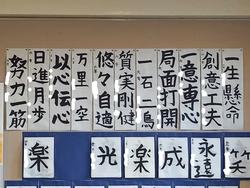 一生懸命
創意工夫
一意専心
局面打開
一石二鳥
質実剛健
悠々自適
万里一空
以心伝心
日進月歩
努力一筋
笑
永遠
成
楽
光
楽